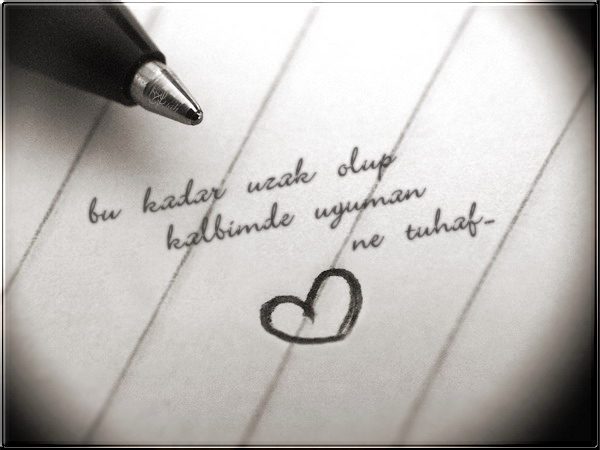 bu kadar uzak olup
kalbimde uyuman
ne tuhaf_